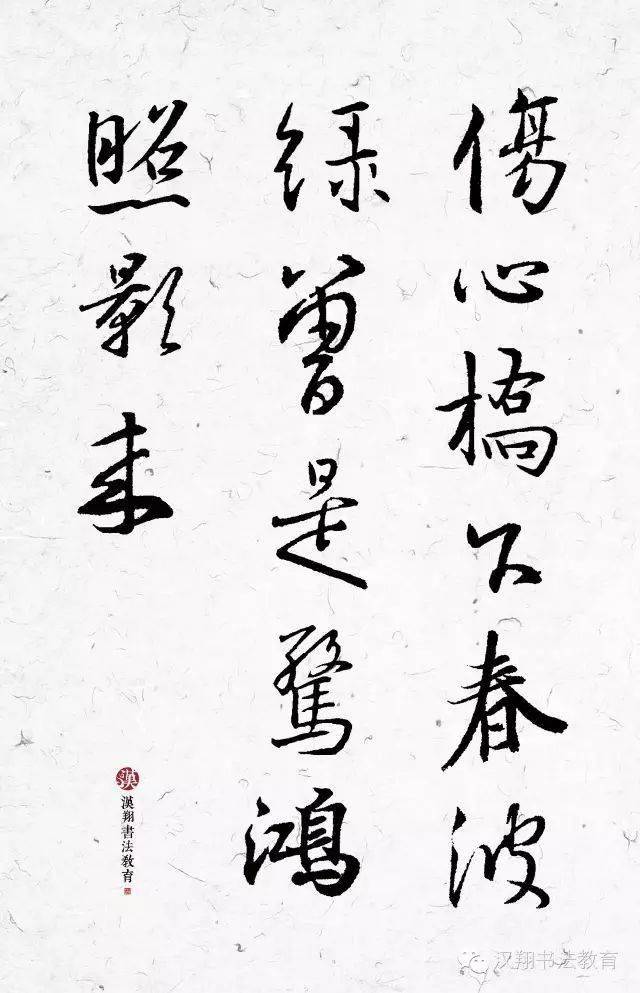 傷心橋下春波
綠曾是驚鴻
照影來
漢
漢翔書法教育
汉翔书法教育